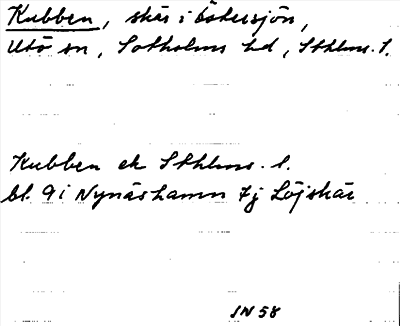 Kubben, skär i Östersjön,
Utö sn, Sotholms hd, Sthlms. l.
Kubben ek Sthlms. l.
bl. 9 i Nynäshamn 7j Löjskär
JN 58